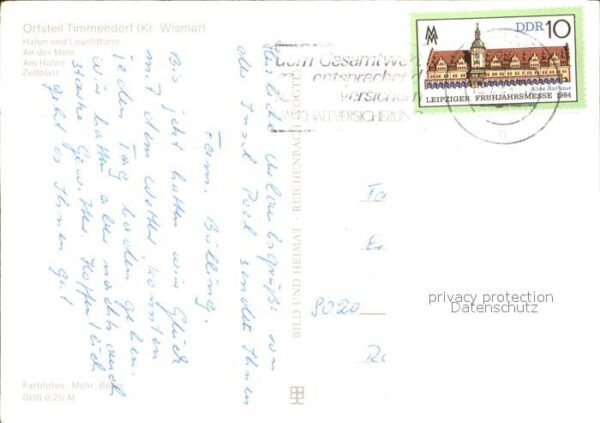 Ortsteil Timmendorf (Kr. Wismar)
Hafen und Leuchtturm
An der Mole
Am Hafen
Zeltplatz
Herzliche Urlaubsgrüße von
der Insel Poel sendet Ihnen
Fam. Bülling.
Bis jetzt hatten wir Glück
mit dem Wetter, konnten
jeden Tag baden gehen.
Wir hatten aber nachts auch
starke Gewitter. Hoffentlich
geht es Ihnen gut
Farbfotos: Mohr, Berlin
DDR 0,20 M
BILD UND HEIMAT · REICHENBACH
dem Gesamtwert
entsprechend
versichern
HAUSHALTVERSICHERUNG
DDR 10
Altes Rathaus
LEIPZIGER FRÜHJAHRSMESSE 1984
8020
privacy protection
Datenschutz